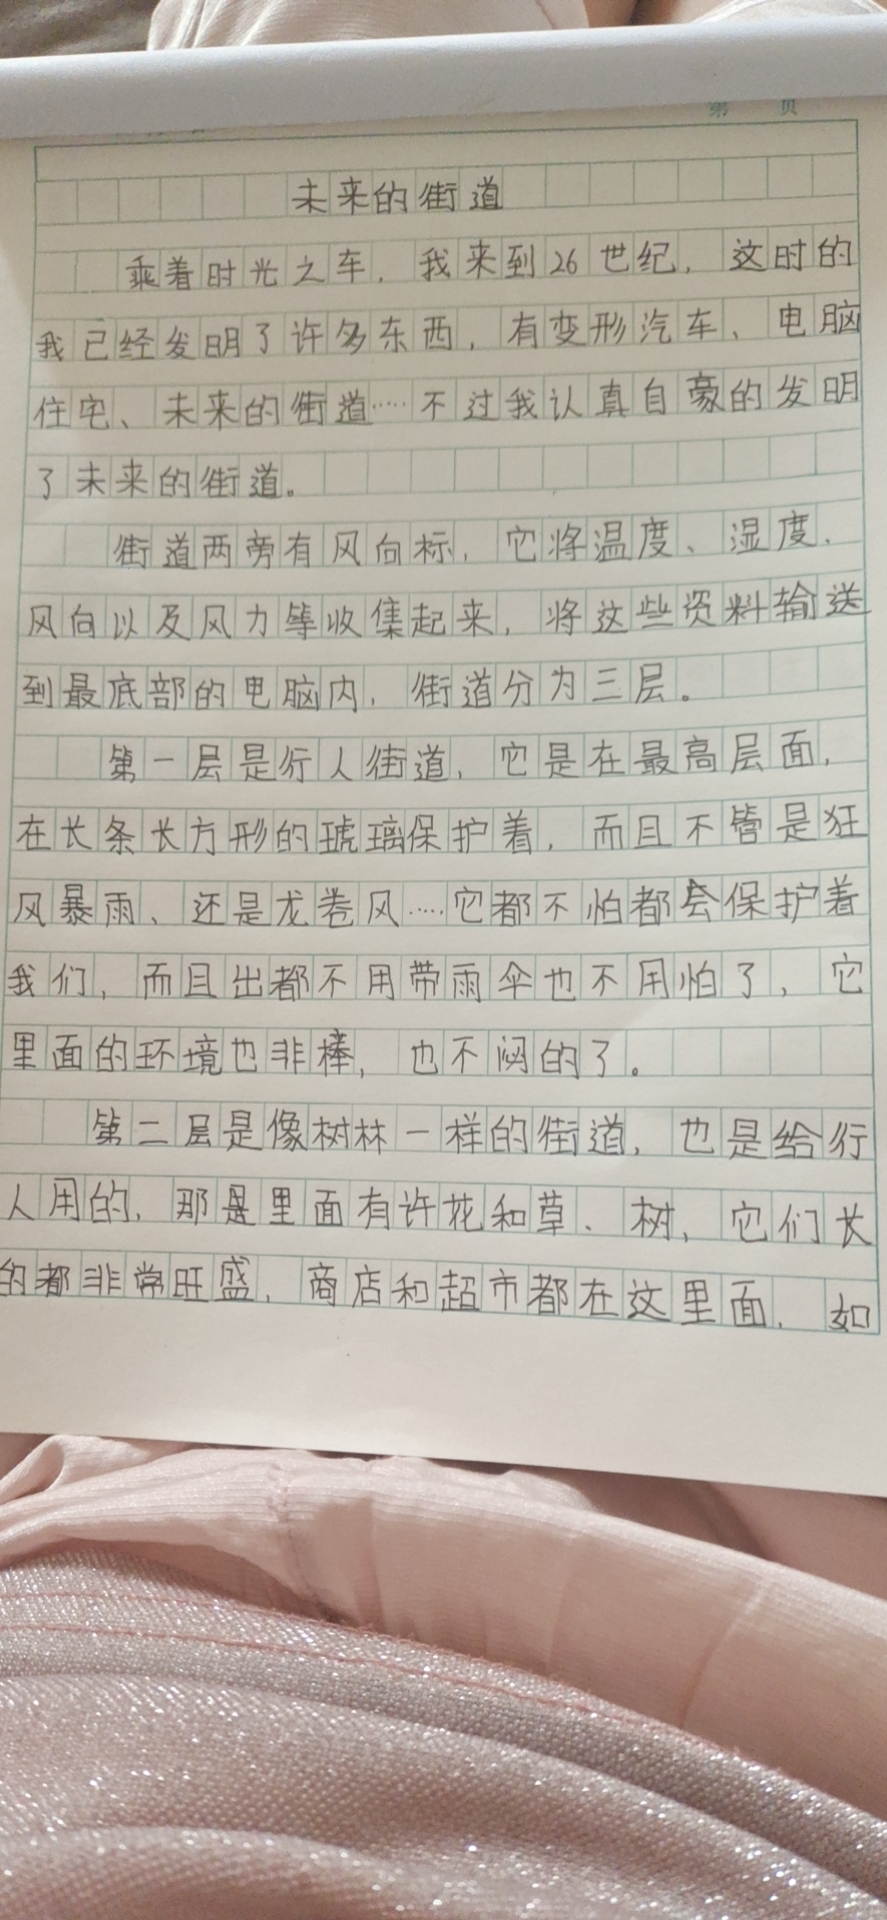 第 页
未来的街道
乘着时光之车，我来到26世纪，这时的
我已经发明了许多东西，有变形汽车、电脑
住宅、未来的街道……不过我认真自豪的发明
了未来的街道。
街道两旁有风向标，它将温度、湿度，
风向以及风力等收集起来，将这些资料输送
到最底部的电脑内，街道分为三层。
第一层是行人街道，它是在最高层面，
在长条长方形的琥璃保护着，而且不管是狂
风暴雨、还是龙卷风……它都不怕都会保护着
我们，而且出都不用带雨伞也不用怕了，它
里面的环境也非棒，也不闷的了。
第二层是像树林一样的街道，也是给行
人用的，那是里面有许花和草、树，它们长
的都非常旺盛，商店和超市都在这里面，如